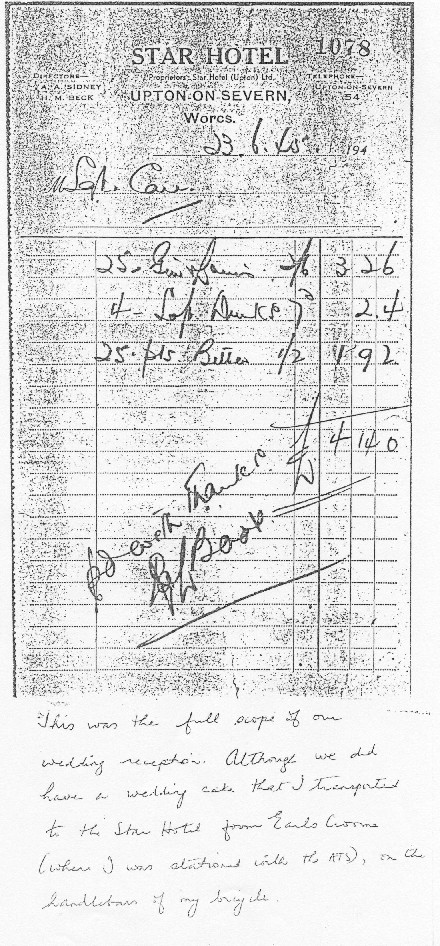 STAR HOTEL 1078
DIRECTORS— Proprietors: Star Hotel (Upton) Ltd. TELEPHONE—
A. A. SIDNEY UPTON-ON-SEVERN
H. M. BECK UPTON-ON-SEVERN, 54
Worcs.
23. 6. 45. 194
M Sgt. Carr.
25 - Gin & 2/6 3 2 6
4 - Soft Drinks 7d 2. 4
25. pts Bitter 1/2 1 9 2
4 14 0
Pd with Thanks
Beck
This was the full scope of our
wedding reception. Although we did
have a wedding cake that I transported
to the Star Hotel from Earls Croome
(where I was stationed with the ATS), on the
handlebars of my bicycle.